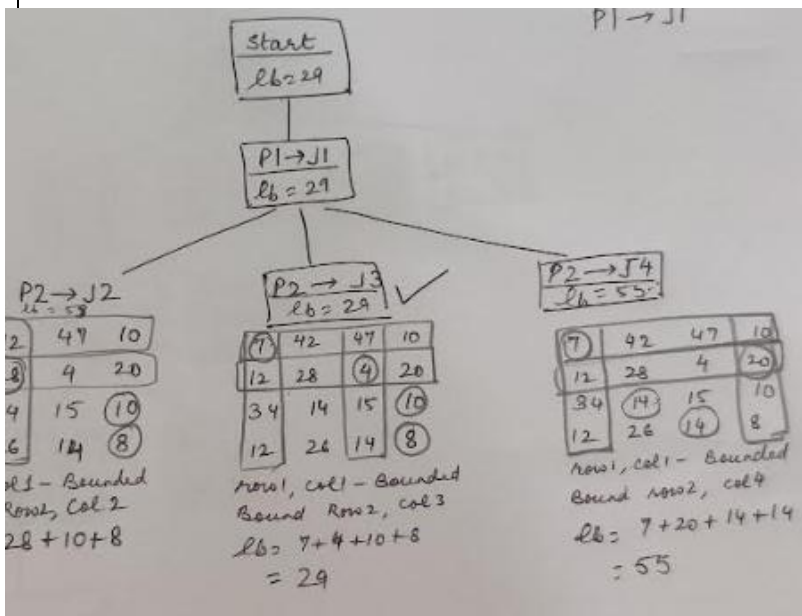 P1 → J1
Start
lb = 29
P1 → J1
lb = 29
P2 → J2
lb = 53
2 47 10
8 4 20
4 15 10
6 14 8
Bounded
Row2, Col 2
28 + 10 + 8
P2 → J3
lb = 29
7 42 47 10
12 28 4 20
34 14 15 10
12 26 14 8
row1, col1 - Bounded
Bound Row2, Col3
lb = 7 + 4 + 10 + 8
= 29
P2 → J4
lb = 55
7 42 47 10
12 28 4 20
34 14 15 10
12 26 14 8
row1, col1 - Bounded
Bound row2, col4
lb = 7 + 20 + 14 + 14
= 55